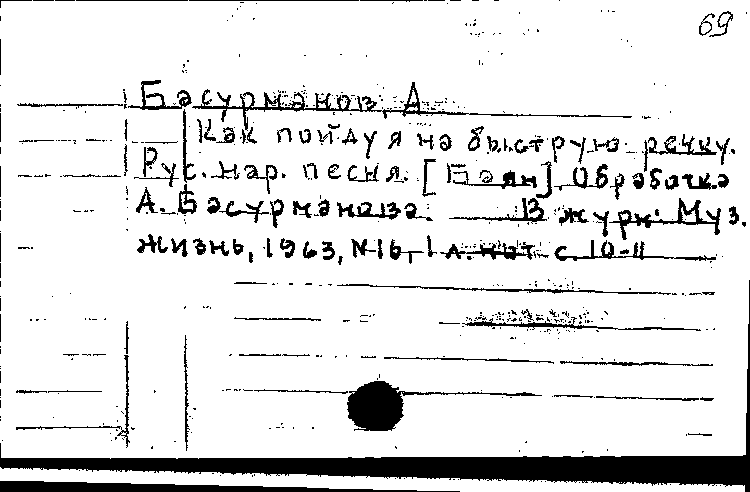 69
Басурманов, А
Как пойду я на быструю речку.
Рус. нар. песня. [Баян]. Обработка
А. Басурманова. В журн: Муз.
жизнь, 1963, №16, 1 л. нот с. 10-11